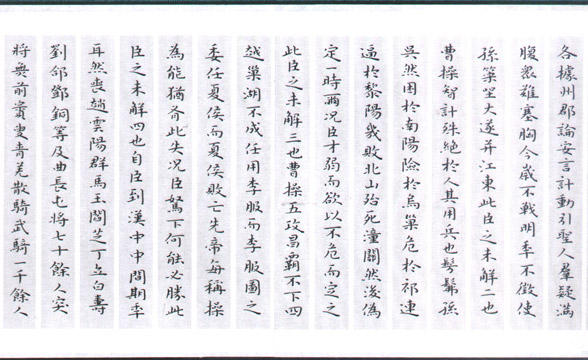 各據州郡論安言計動引聖人羣疑滿
腹衆難塞胸今歲不戰明年不徵使
孫策坐大遂并江東此臣之未解二也
曹操智計殊絕於人其用兵也髣髴孫
吳然困於南陽險於烏巢危於祁連
逼於黎陽幾敗北山殆死潼關然後偽
定一時爾況臣才弱而欲以不危而定之
此臣之未解三也曹操五攻昌霸不下四
越巢湖不成任用李服而李服圖之
委任夏侯而夏侯敗亡先帝每稱操
為能猶有此失況臣駑下何能必勝此
臣之未解四也自臣到漢中中間期年
耳然喪趙雲陽群馬玉閻芝丁立白壽
劉郃鄧銅等及曲長屯將七十餘人突
將無前賨叟青羌散騎武騎一千餘人